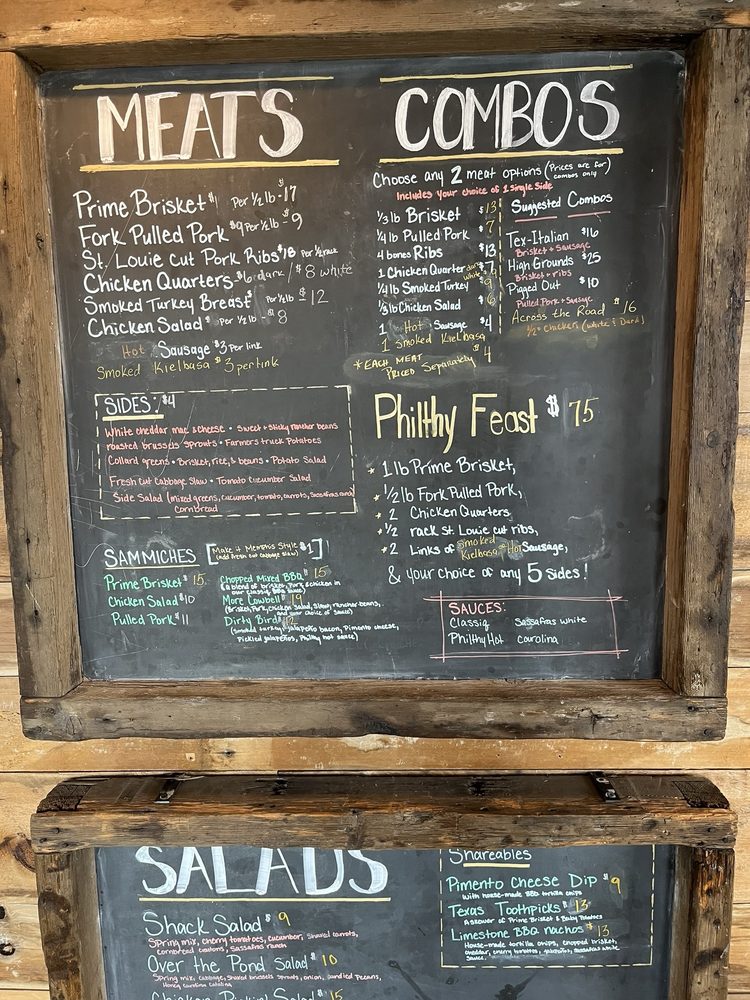 MEATS
Prime Brisket $ Per 1/2 lb - 17
Fork Pulled Pork $9 Per 1/2 lb - 9
St. Louie Cut Pork Ribs $18 Per 1/2 rack
Chicken Quarters - $6 dark / $8 white
Smoked Turkey Breast $ Per 1/2 lb $12
Chicken Salad $ Per 1/2 lb - 8
Hot Sausage $3 Per link
Smoked Kielbasa $3 per link
SIDES: $4
White cheddar mac & cheese • Sweet & Sticky rancher beans
roasted brussels sprouts • Farmers truck Potatoes
Collard greens • Brisket, rice, & beans • Potato Salad
Fresh Cut Cabbage Slaw • Tomato Cucumber Salad
Side Salad (mixed greens, cucumber, tomato, carrots, Sassafras ranch
Cornbread
SAMMICHES
[Make it Memphis Style $1]
(add fresh cut cabbage slaw)
Prime Brisket $15
Chicken Salad $10
Pulled Pork $11
Chopped Mixed BBQ $15
(a blend of brisket, pork, & chicken in
our classic BBQ sauce)
More Cowbell $19
(Brisket, Pork, Chicken Salad, Slaw, rancher beans,
and your choice of sauce)
Dirty Bird $12
(smoked turkey, jalapeño bacon, Pimento cheese,
Pickled jalapeños, Philthy hot sauce)
COMBOS
Choose any 2 meat options (Prices are for
combos only)
Includes your choice of 1 Single Side
1/3 lb Brisket $13
1/4 lb Pulled Pork $7
4 bones Ribs $13
1 Chicken Quarter dark $7
white $9
1/4 lb Smoked Turkey
1/3 lb Chicken Salad 6
1 Hot Sausage $4
1 Smoked Kielbasa $4
*EACH MEAT
Priced Separately
Suggested Combos
Tex-Italian $16
Brisket & Sausage
High Grounds $25
Brisket & ribs
Pigged Out $10
Pulled Pork & Sausage
Across the Road $16
1/2 Chicken (White & Dark)
Philthy Feast $75
* 1 lb Prime Brisket,
* 1/2 lb Fork Pulled Pork,
* 2 Chicken Quarters
* 1/2 rack St Louie cut ribs,
* 2 Links of Smoked
Kielbasa or Hot Sausage,
& your choice of any 5 Sides!
SAUCES:
Classiq Sassafras White
Philthy Hot Carolina
SALADS
Shack Salad $9
Spring mix, cherry tomatoes, cucumber, shaved carrots,
cornbread coutons, Sassafras ranch
Over the Pond Salad $10
Spring mix, cabbage, shaved brussels sprouts, onion, candied Pecans,
Honey Carolina catalina
$15
Shareables
Pimento Cheese Dip $9
with house-made BBQ tortilla chips
Texas Toothpicks $13
A skewer of Prime Brisket & Baby Potatoes
Limestone BBQ Nachos $13
House-made tortilla chips, chopped brisket,
cheddar, cherry tomatoes, jalapeños, sassafras white
Sauce.